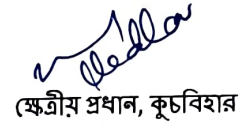 ক্ষেত্রীয় প্রধান, কুচবিহার